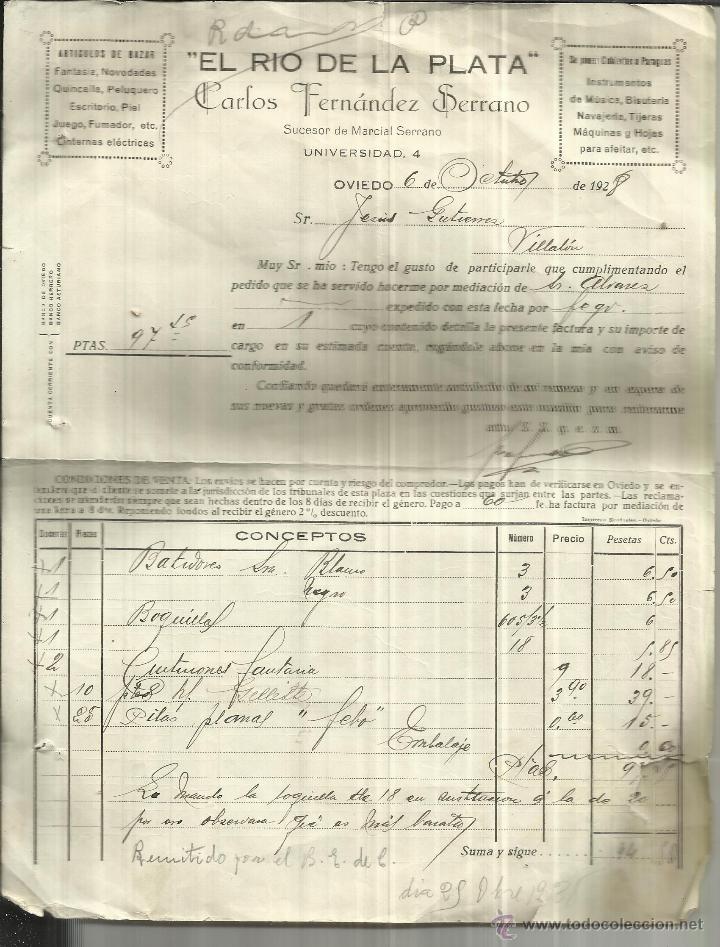 ARTICULOS DE BAZAR
Fantasía, Novedades
Quincalla, Peluquero
Escritorio, Piel
Juego, Fumador, etc.
Linternas eléctricas
"EL RIO DE LA PLATA"
Carlos Fernández Serrano
Sucesor de Marcial Serrano
UNIVERSIDAD, 4
Se ponen Cubiertas a Paraguas
Instrumentos
de Música, Bisutería
Navajería, Tijeras
Máquinas y Hojas
para afeitar, etc.
OVIEDO 6 de Octubre de 1928
Sr. Jesús Gutierrez
Villalón
CUENTA CORRIENTE CON
BANCO DE OVIEDO
BANCO HERRERO
BANCO ASTURIANO
PTAS. 97 45
Muy Sr. mio: Tengo el gusto de participarle que cumplimentando el
pedido que se ha servido hacerme por mediación de Sr. Alvarez
expedido con esta fecha por
en 1 cuyo contenido detalla la presente factura y su importe de
cargo en su estimada cuenta, rogándole abone en la mia con aviso de
conformidad.
Confiando quedará enteramente satisfecho de mi remesa y en espera de
sus nuevas y gratas ordenes
s. s. q. e. s. m.
CONDICIONES DE VENTA: Los envios se hacen por cuenta y riesgo del comprador.—Los pagos han de verificarse en Oviedo y se en-
tiende que el cliente se somete a la jurisdicción de los tribunales de esta plaza en las cuestiones que surjan entre las partes.—Las reclama-
ciones se atenderán siempre que sean hechas dentro de los 8 días de recibir el género. Pago a 60 f/e ha factura por mediación de
una letra a 8 d/v. Reponiendo fondos al recibir el género 2% descuento.
Docenas Piezas CONCEPTOS Número Precio Pesetas Cts.
1 Batidores Sra. Blanco 3 6.50
1 Negro 3 6.50
1 Boquillas 605/3½ 6
1 18 5.85
2 Cinturones fantasia 9 18.-
10 hj. Gillette 3.90 39.-
25 Pilas planas "Febo" 0.60 15.-
Embalaje 0.60
Ptas. 97
Le mando la boquilla 18 en sustitucion la de 20
por eso observara es más barata
Suma y sigue 94 58
Remitido por el B. E. de C.
dia 25
www.todocoleccion.net